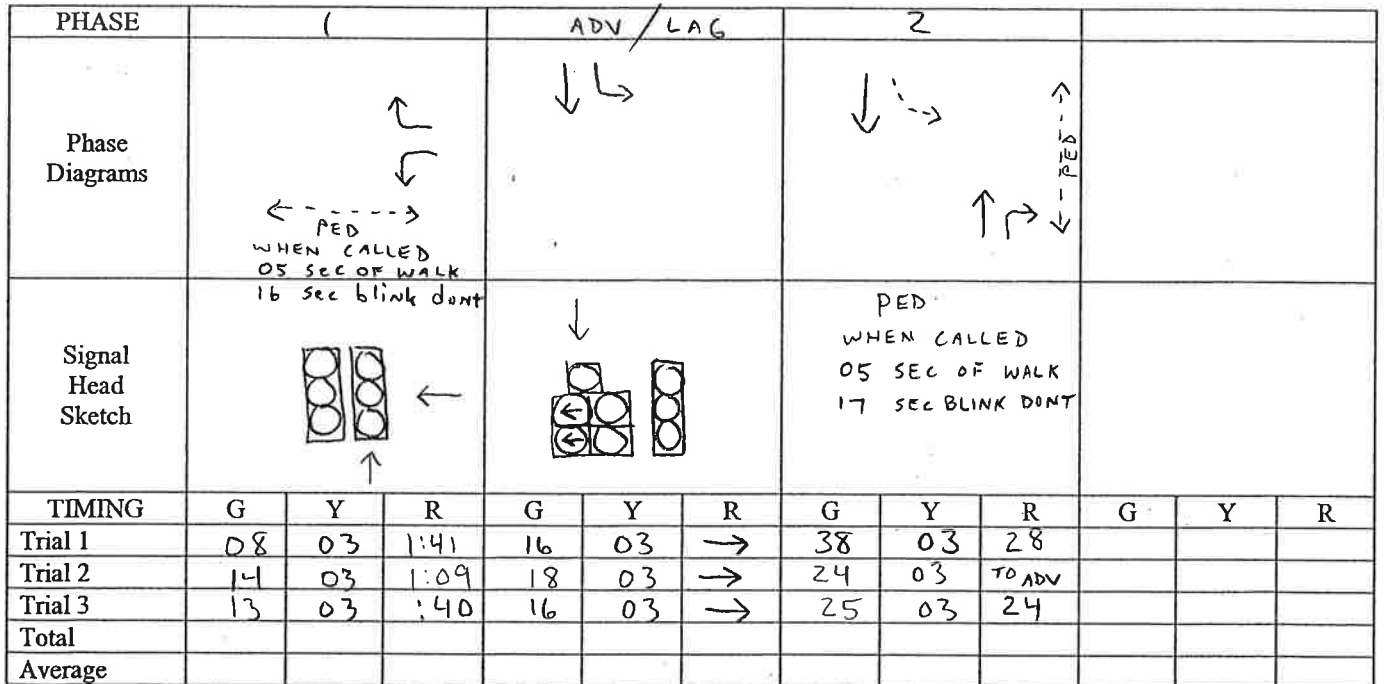 PHASE 1 ADV / LAG 2
Phase
Diagrams
PED
WHEN CALLED
05 SEC OF WALK
16 Sec blink dont
PED
Signal
Head
Sketch
PED
WHEN CALLED
05 SEC OF WALK
17 SEC BLINK DONT
TIMING G Y R G Y R G Y R G Y R
Trial 1 08 03 1:41 16 03 → 38 03 28
Trial 2 14 03 1:09 18 03 → 24 03 TO ADV
Trial 3 13 03 :40 16 03 → 25 03 24
Total
Average